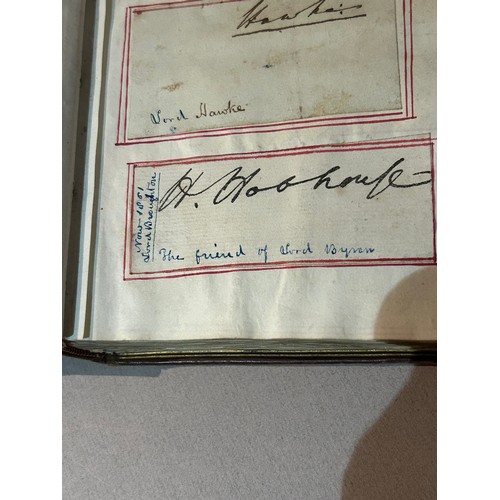 Hawke
Lord Hawke
Now - 1851
Lord Broughton
H. Hobhouse
The friend of Lord Byron